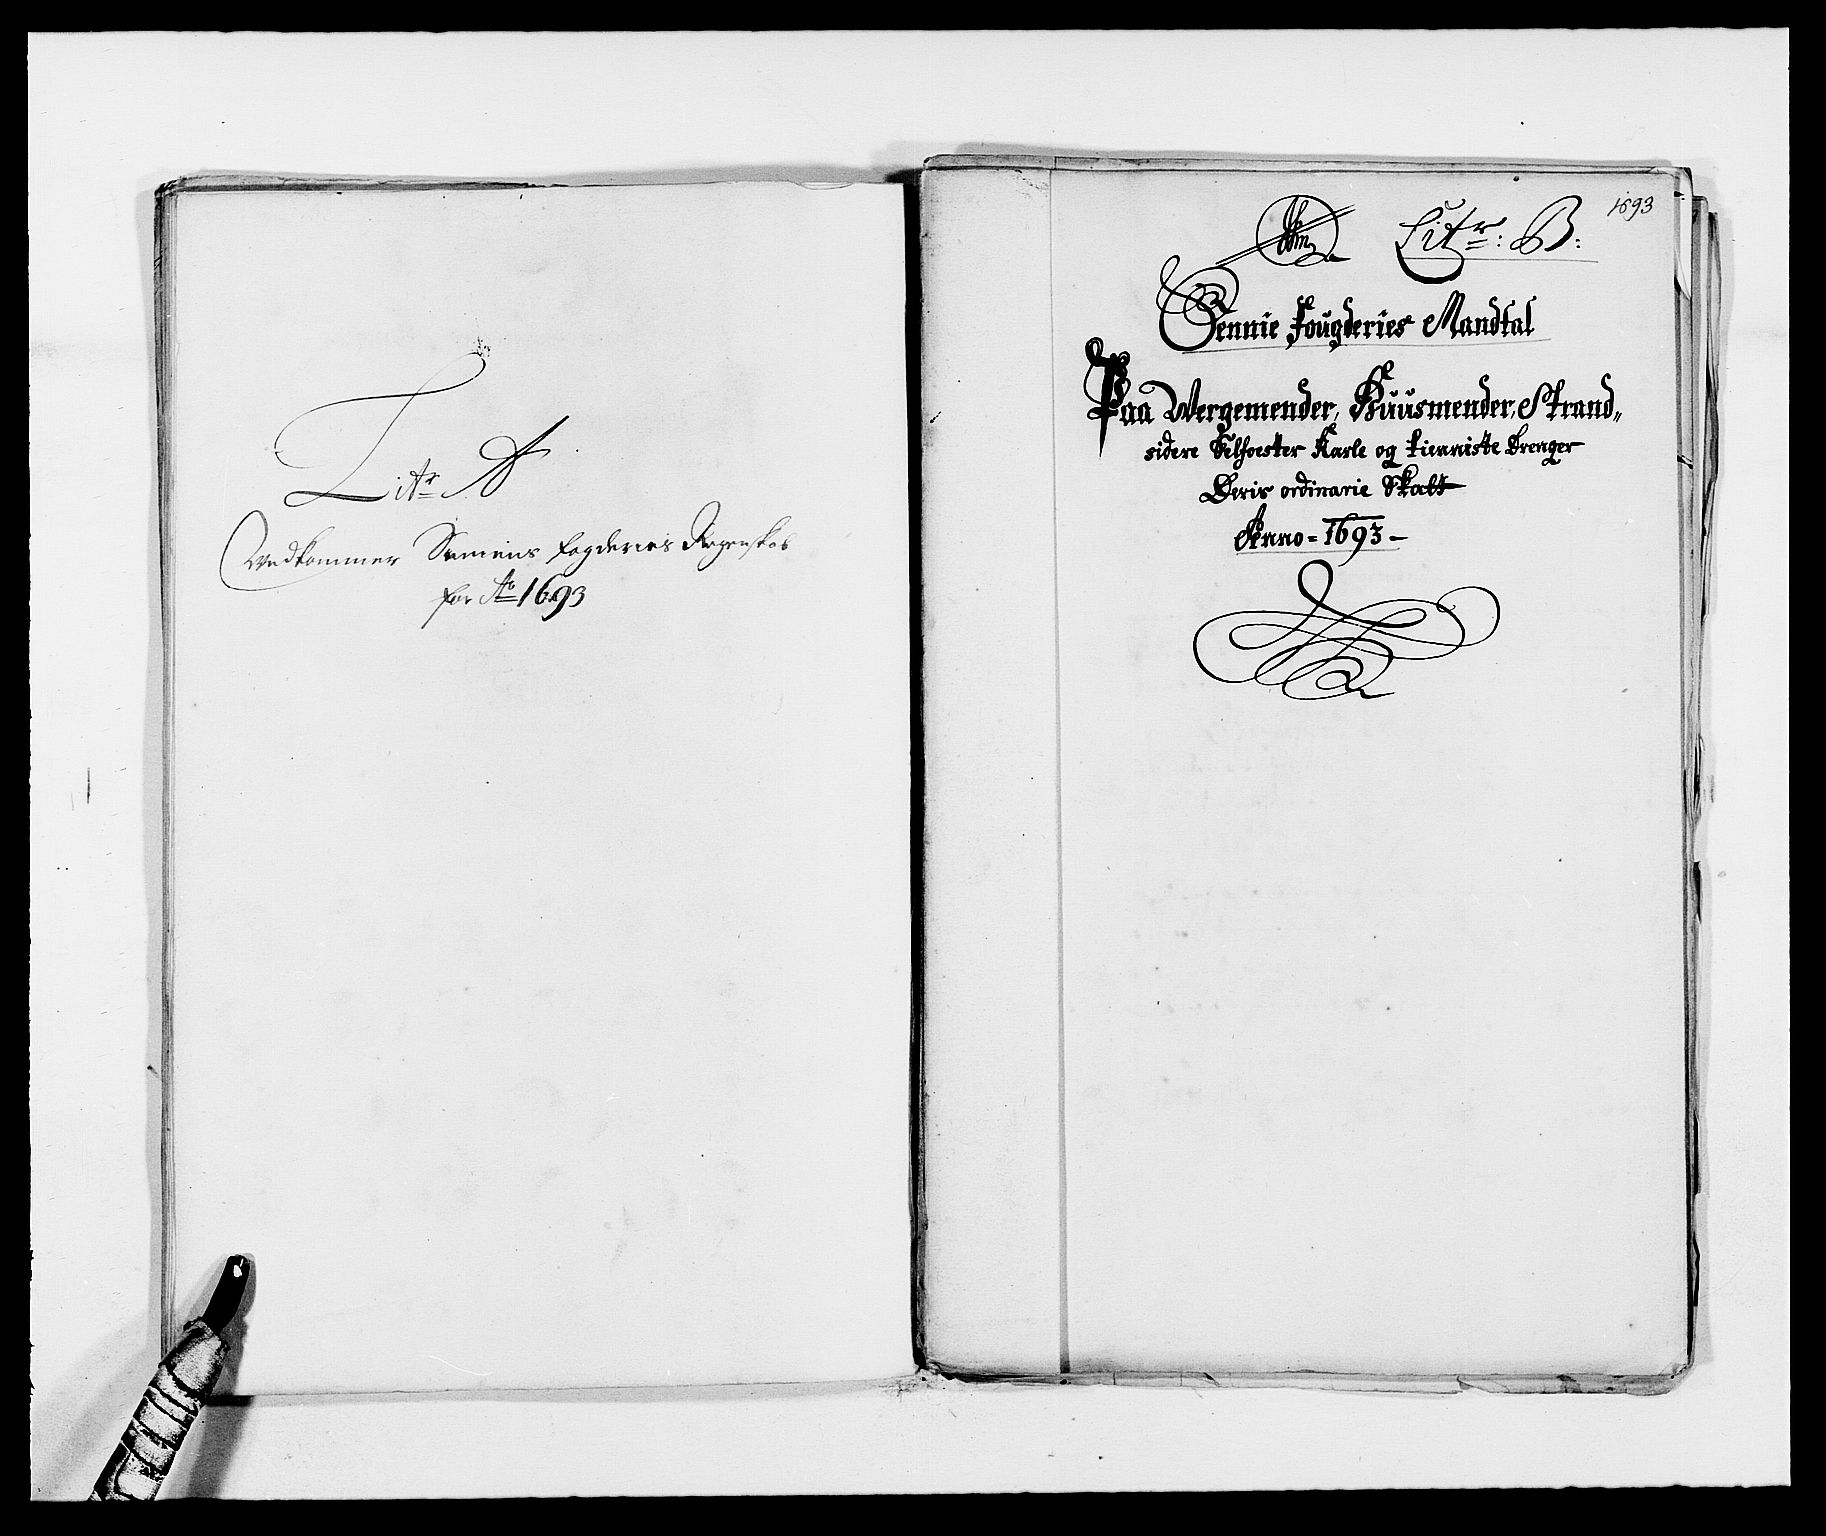 Litr A
Vedkommer Senniens fogderies Regenskab
for Ao 1693
1693
Litr: B:
Sennie Fougderies Mandtal
Paa Wergemender, Huusmender, Strand„
sidere Selfoester Karle og tienniste Drenger
Deris ordinarie Skatt
Anno = 1693 –